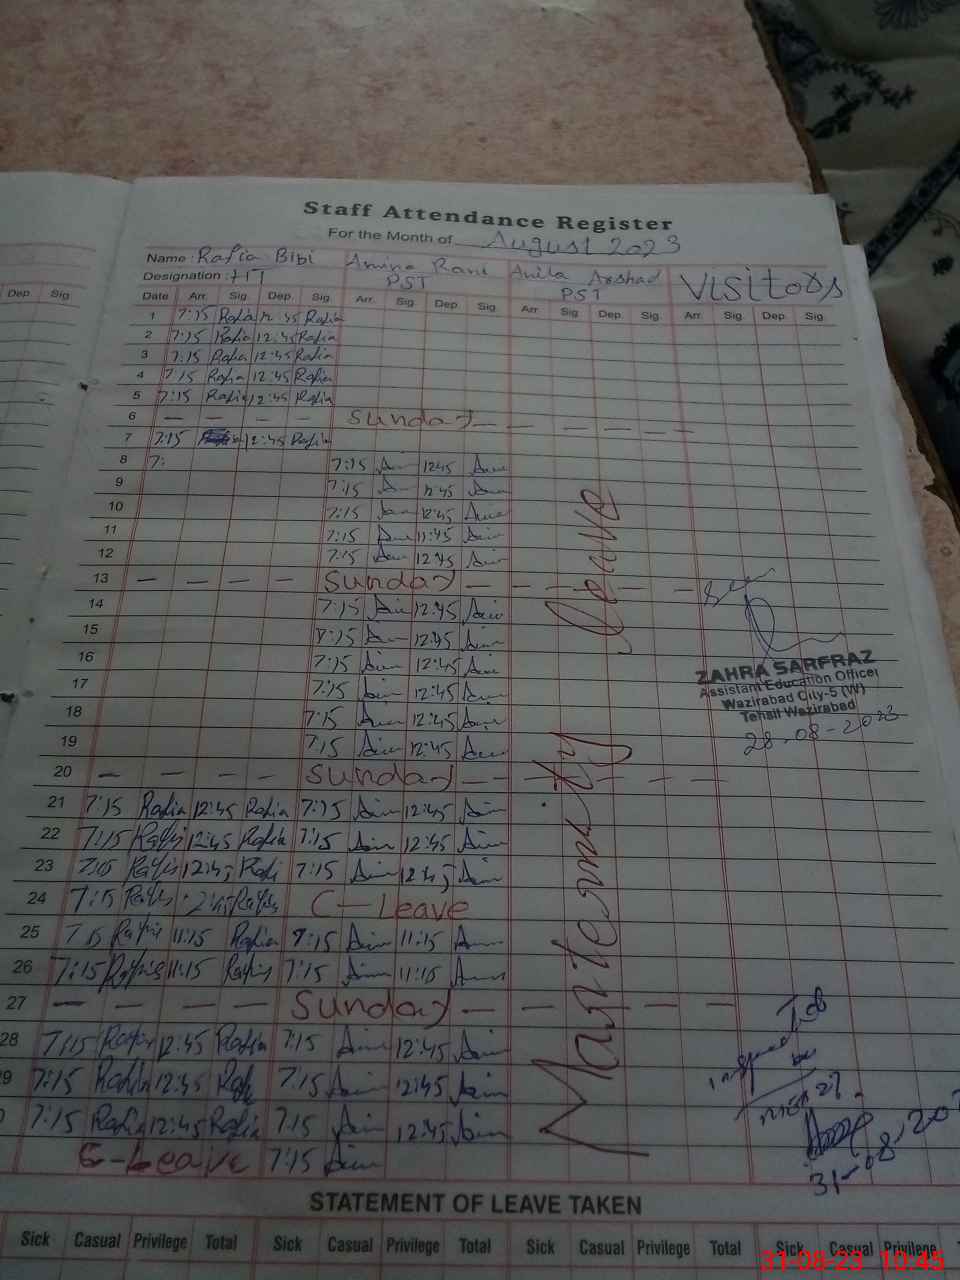 Staff Attendance Register
For the Month of August 2023
Name : Rafia Bibi Amina Rani Anila Arshad Visitors
Designation : PST PST
Dep. Sig. Date Arr. Sig. Dep. Sig. Arr. Sig. Dep. Sig. Arr. Sig. Dep. Sig. Arr. Sig. Dep. Sig.
1 7:15 Rafia 12:45 Rafia
2 7:15 Rafia 12:45 Rafia
3 7:15 Rafia 12:45 Rafia
4 7:15 Rafia 12:45 Rafia
5 7:15 Rafia 12:45 Rafia
6 — — — — Sunday — — — — —
7 7:15 12:45 Rafia
8 7: 7:15 12:45
9 7:15 12:45
10 7:15 12:45
11 7:15 11:45
12 7:15 12:45
13 — — — — Sunday — — — — —
14 7:15 12:45
15 7:15 12:45
16 7:15 12:45
17 7:15 12:45
18 7:15 12:45
19 7:15 12:45
20 — — — — Sunday — — — — —
21 7:15 Rafia 12:45 Rafia 7:15 12:45
22 7:15 Rafia 12:45 Rafia 7:15 12:45
23 7:15 Rafia 12:45 Rafi 7:15 12:45
24 7:15 Rafia Rafia C-Leave
25 7:15 Rafia 11:15 Rafia 7:15 11:15
26 7:15 Rafia 11:15 Rafia 7:15 11:15
27 — — — — Sunday — — — — —
28 7:15 Rafia 12:45 Rafia 7:15 12:45
29 7:15 Rafia 12:45 Rafia 7:15 12:45
7:15 Rafia 12:45 Rafia 7:15 12:45
C-Leave 7:15
Maternity leave
ZAHRA SARFRAZ
Assistant Education Officer
Wazirabad City-5 (W)
Tehsil Wazirabad
28-08-2023
31-08-20
STATEMENT OF LEAVE TAKEN
Sick Casual Privilege Total Sick Casual Privilege Total Sick Casual Privilege Total Sick Casual Privilege
31-08-23 10:45